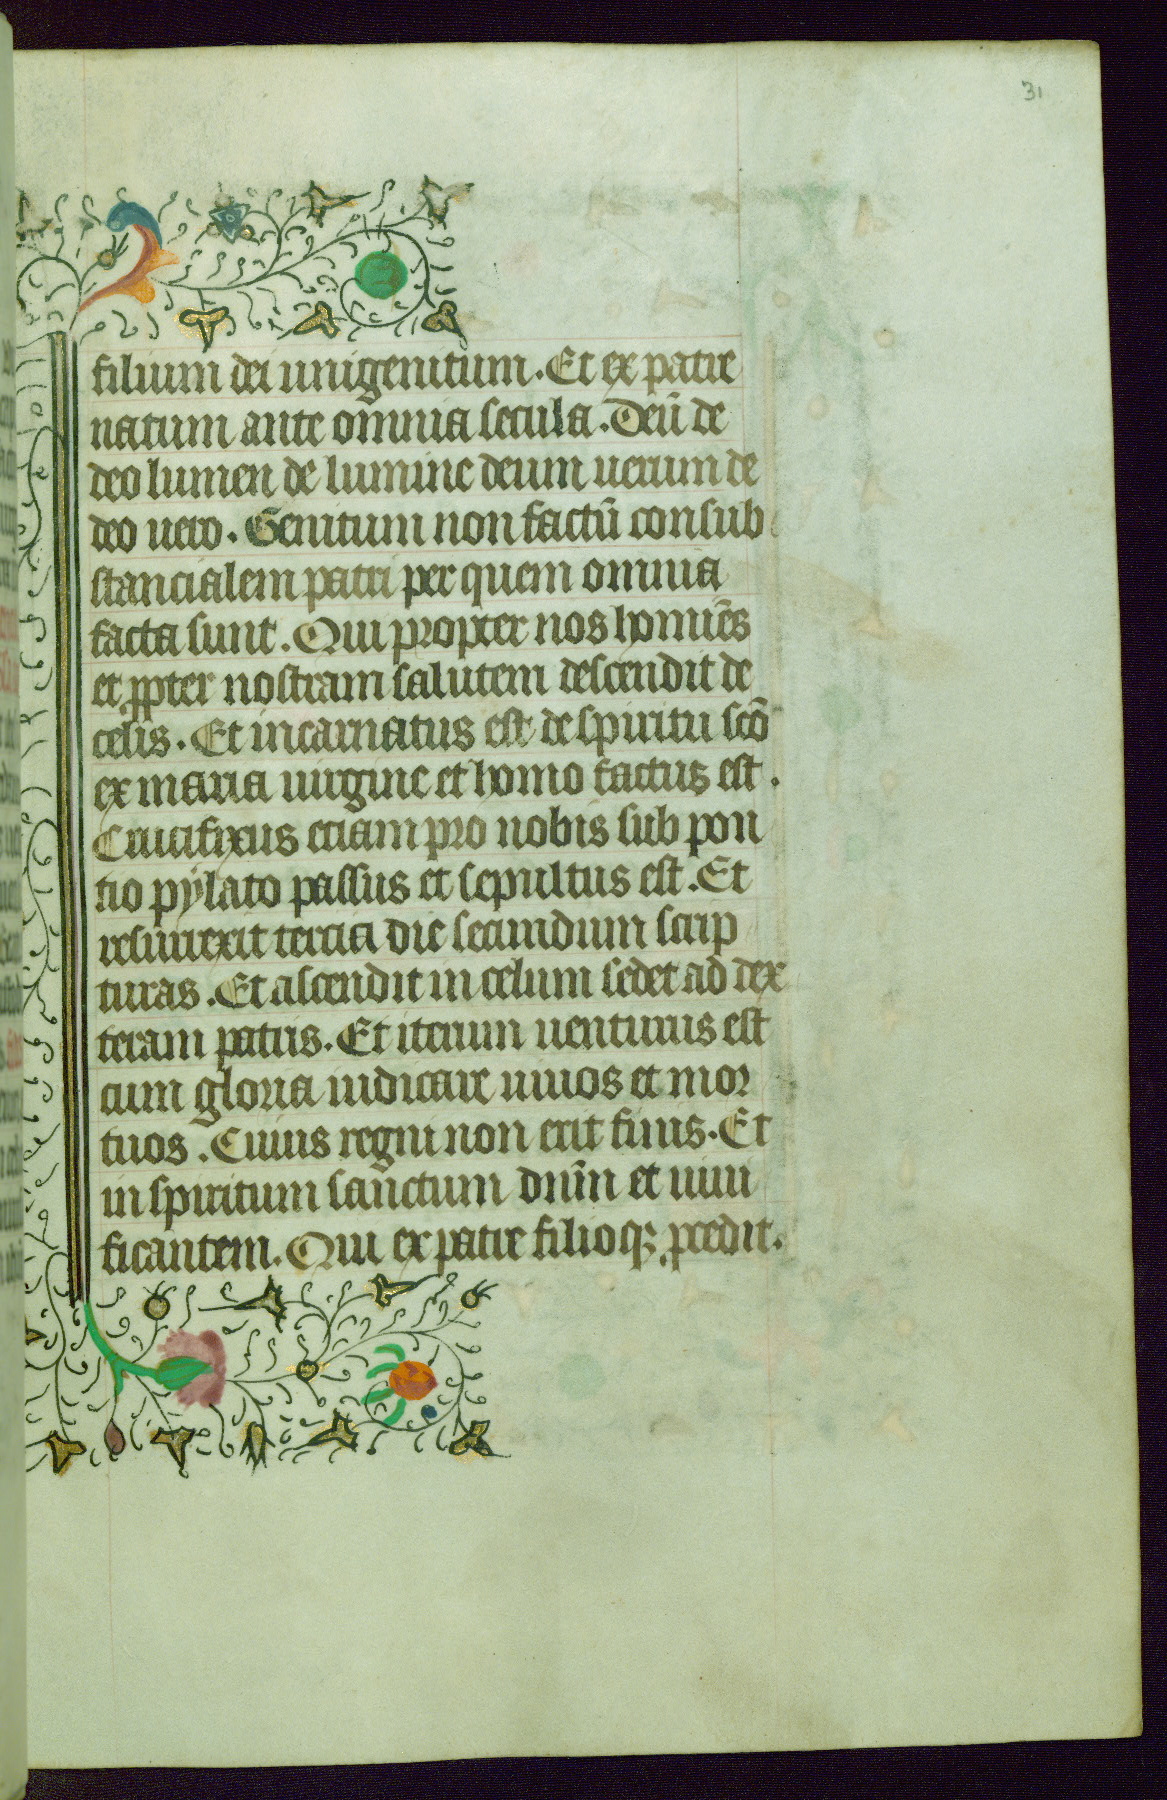 31
filium dei unigenitum. Et ex patre
natum ante omnia secula. Deū de
deo lumen de lumine deum uerum de
deo uero. Genitum non factū consub
stancialem patri per quem omnia
facta sunt. Qui propter nos homiēs
et ꝓpter nostram salutem descendit de
celis. Et incarnatus est de spiritu scō
ex maria uirgine et homo factus est.
Crucifixus eciam pro nobis sub pon
tio pylato passus et sepultus est. Et
resurrexit tercia die secundum scrip
turas. Et ascendit in celum sedet ad dex
teram patris. Et iterum uenturus est
cum gloria iudicare uiuos et mor
tuos. Cuius regni non erit finis. Et
in spiritum sanctum dnīm et uiui
ficantem. Qui ex patre filioqꝫ ꝓcedit.